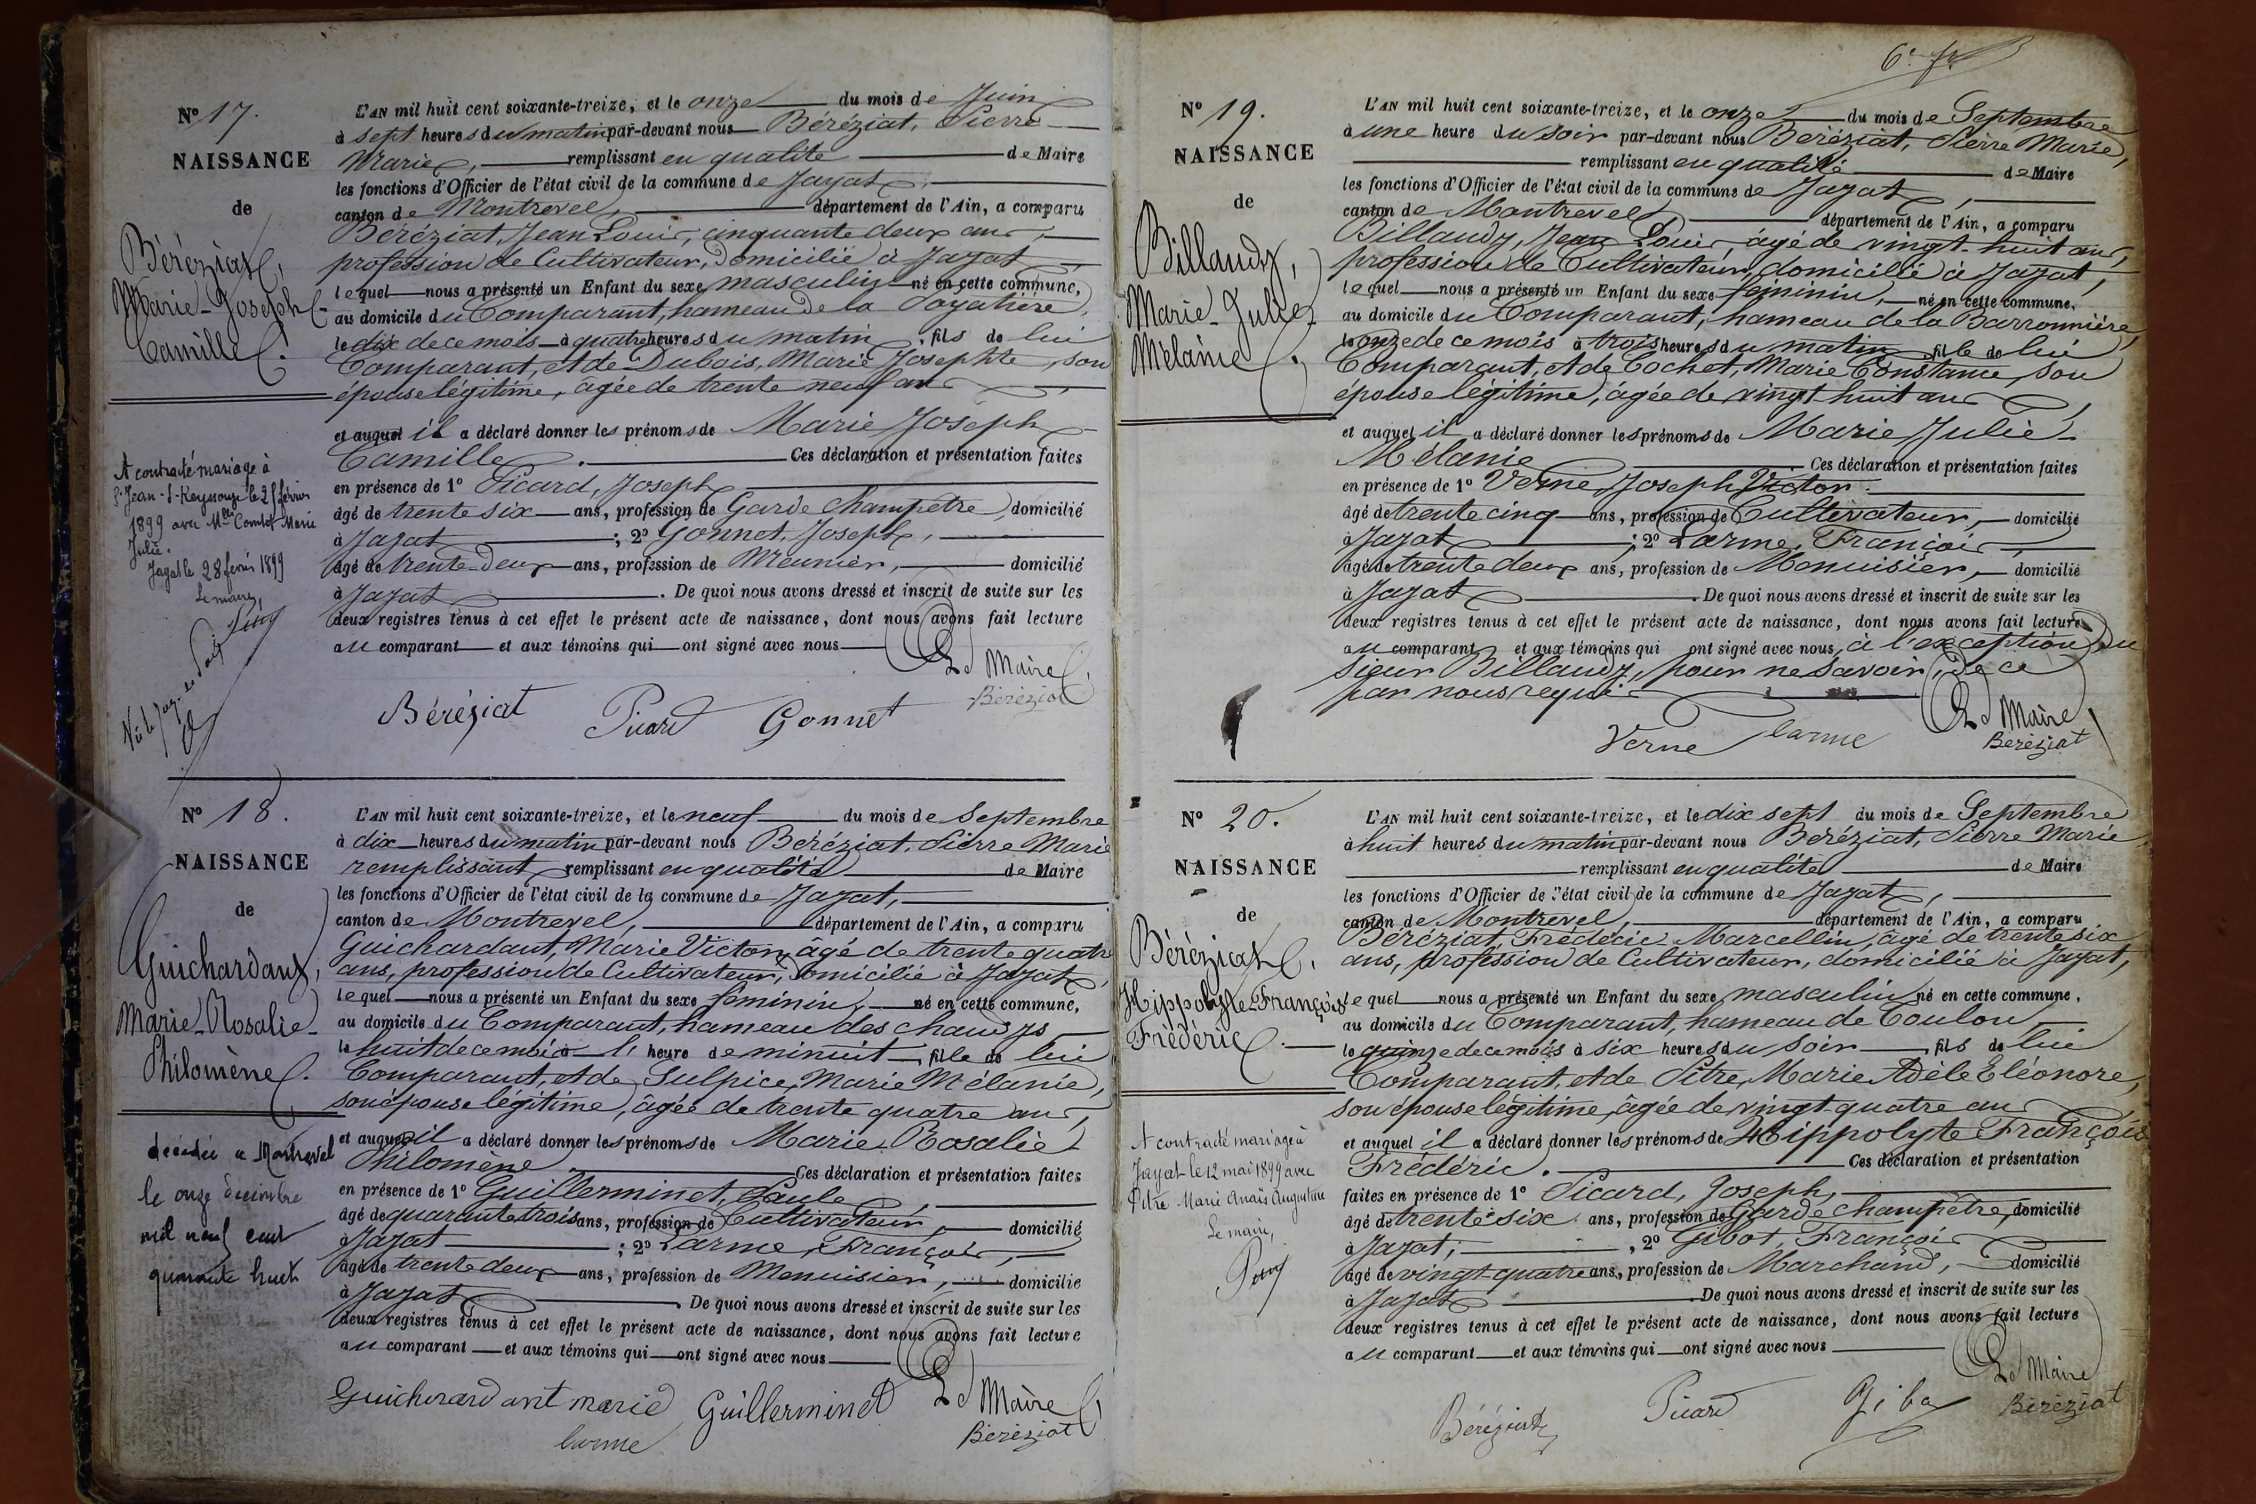 N° 17.
NAISSANCE
de
Béréziat,
Marie-Joseph
Camille.
A contracté mariage à
St Jean-s-Reyssouze le 25 février
1899 avec Mlle Comtet Marie
Julie.
Jayat le 28 février 1899
Le maire,
L'AN mil huit cent soixante-treize, et le onze du mois de Juin
à sept heures du matin par-devant nous Béréziat, Pierre
Marie, remplissant en qualité de Maire
les fonctions d'Officier de l'état civil de la commune de Jayat
canton de Montrevel, département de l'Ain, a comparu
Béréziat, Jean Louis, cinquante deux ans,
profession de Cultivateur, domicilié à Jayat
lequel nous a présenté un Enfant du sexe masculin né en cette commune,
au domicile du Comparant, hameau de la
le dix de ce mois à quatre heures du matin, fils de lui
Comparant, et de Dubois, Marie Josephte, son
épouse légitime, âgée de trente neuf ans
et auquel il a déclaré donner les prénoms de Marie Joseph
Camille. Ces déclaration et présentation faites
en présence de 1° Picard, Joseph
âgé de trente six ans, profession de Garde champêtre, domicilié
à Jayat ; 2° Gonnet, Joseph,
âgé de trente-deux ans, profession de Meunier, domicilié
à Jayat. De quoi nous avons dressé et inscrit de suite sur les
deux registres tenus à cet effet le présent acte de naissance, dont nous avons fait lecture
au comparant et aux témoins qui ont signé avec nous
Le Maire
Béréziat Picard Gonnet Béréziat
N° 18.
NAISSANCE
de
Guichardant,
Marie-Rosalie-
Philomène.
décédée à Montrevel
le onze décembre
mil neuf cent
quarante huit
L'AN mil huit cent soixante-treize, et le neuf du mois de Septembre
à dix heures du matin par-devant nous Béréziat, Pierre Marie
remplissant remplissant en qualité de Maire
les fonctions d'Officier de l'état civil de la commune de Jayat,
canton de Montrevel, département de l'Ain, a comparu
Guichardant, Marie Victor, âgé de trente quatre
ans, profession de Cultivateur, domicilié à Jayat,
lequel nous a présenté un Enfant du sexe féminin, né en cette commune,
au domicile du Comparant, hameau des
le huit de ce mois à l' heure de minuit, fille de lui
Comparant, et de Sulpice, Marie Mélanie,
son épouse légitime, âgée de trente quatre ans,
et auquel il a déclaré donner les prénoms de Marie Rosalie
Philomène Ces déclaration et présentation faites
en présence de 1° Guillerminet, Paule,
âgé de quarante trois ans, profession de Cultivateur, domicilié
à Jayat ; 2° Larme, François,
âgé de trente deux ans, profession de Menuisier, domicilié
à Jayat. De quoi nous avons dressé et inscrit de suite sur les
deux registres tenus à cet effet le présent acte de naissance, dont nous avons fait lecture
au comparant et aux témoins qui ont signé avec nous
Guicherard ant marie Guillerminet Le Maire
larme Béréziat
N° 19.
NAISSANCE
de
Billaudy,
Marie-Julie-
Mélanie.
L'AN mil huit cent soixante-treize, et le onze du mois de Septembre
à une heure du soir par-devant nous Béréziat, Pierre Marie,
remplissant en qualité de Maire
les fonctions d'Officier de l'état civil de la commune de Jayat,
canton de Montrevel, département de l'Ain, a comparu
Billaudy, Jean Louis, âgé de vingt-huit ans,
profession de Cultivateur, domicilié à Jayat,
lequel nous a présenté un Enfant du sexe féminin, né en cette commune,
au domicile du Comparant, hameau de la Barronnière,
le onze de ce mois à trois heures du matin, fille de lui
Comparant, et de Cochet, Marie Constance, son
épouse légitime, âgée de vingt huit ans,
et auquel il a déclaré donner les prénoms de Marie Julie
Mélanie Ces déclaration et présentation faites
en présence de 1° Verne, Joseph Victor.
âgé de trente cinq ans, profession de Cultivateur, domicilié
à Jayat ; 2° Larme, François,
âgé de trente deux ans, profession de Menuisier, domicilié
à Jayat. De quoi nous avons dressé et inscrit de suite sur les
deux registres tenus à cet effet le présent acte de naissance, dont nous avons fait lecture
au comparant et aux témoins qui ont signé avec nous, à l'exception du
sieur Billaudy, pour ne savoir, de ce
par nous requis.
Le Maire
Verne larme Béréziat
N° 20.
NAISSANCE
de
Béréziat,
Hippolyte-François
Frédéric.
A contracté mariage à
Jayat le 12 mai 1899 avec
Pitre Marie Anaïs Augustine
Le maire,
L'AN mil huit cent soixante-treize, et le dix sept du mois de Septembre
à huit heures du matin par-devant nous Béréziat, Pierre Marie
remplissant en qualité de Maire
les fonctions d'Officier de l'état civil de la commune de Jayat,
canton de Montrevel, département de l'Ain, a comparu
Béréziat, Frédéric Marcellin, âgé de trente six
ans, profession de Cultivateur, domicilié à Jayat,
lequel nous a présenté un Enfant du sexe masculin né en cette commune,
au domicile du Comparant, hameau de Coulon
le quinze de ce mois à six heures du soir, fils de lui
Comparant, et de Pitre, Marie Adèle Eléonore,
son épouse légitime, âgée de vingt-quatre ans
et auquel il a déclaré donner les prénoms de Hippolyte François
Frédéric. Ces déclaration et présentation
faites en présence de 1° Picard, Joseph,
âgé de trente six ans, profession de Garde champêtre, domicilié
à Jayat; , 2° Gibot, François
âgé de vingt-quatre ans, profession de Marchand, domicilié
à Jayat. De quoi nous avons dressé et inscrit de suite sur les
deux registres tenus à cet effet le présent acte de naissance, dont nous avons fait lecture
au comparant et aux témoins qui ont signé avec nous
Le Maire
Béréziat Picard Béréziat